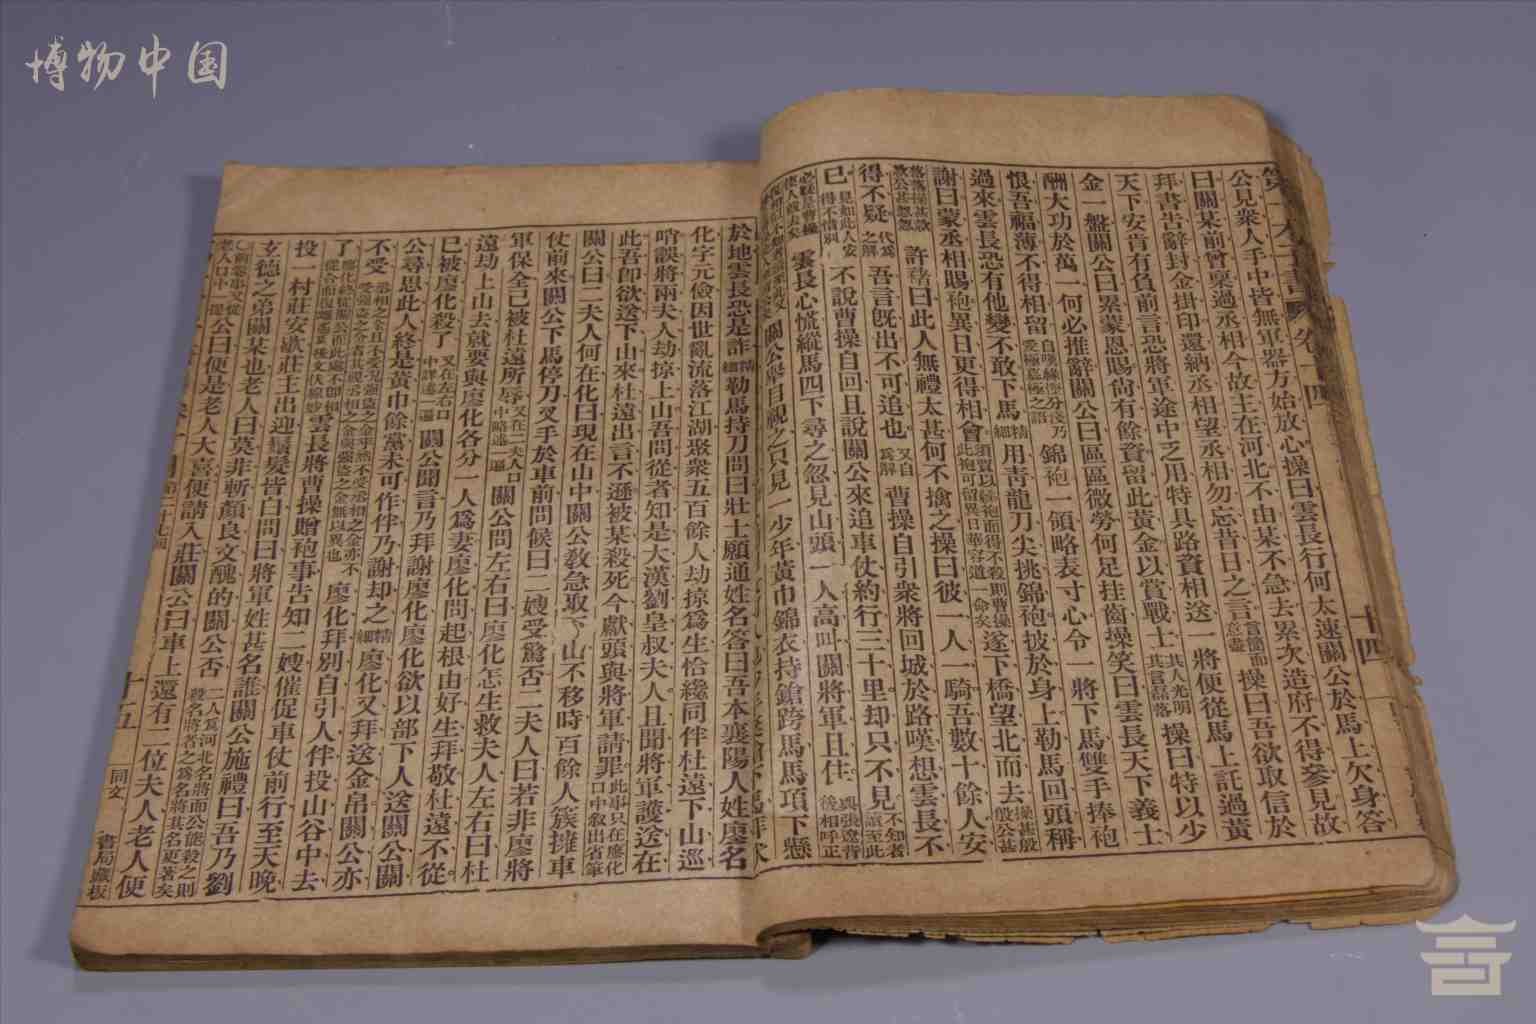 博物中国
第一才子書 卷十四 十四
公見衆人手中皆無軍器方始放心操曰雲長行何太速關公於馬上欠身答
曰關某前曾稟過丞相今故主在河北不由某不急去累次造府不得參見故
拜書告辭封金掛印還納丞相望丞相勿忘昔日之言 操曰吾欲取信於
天下安肯有負前言恐將軍途中乏用特具路資相送一將便從馬上託過黃
金一盤關公曰累蒙恩賜尚有餘資留此黃金以賞戰士 其人光明其言磊落 操曰特以少
酬大功於萬一何必推辭關公曰區區微勞何足挂齒操笑曰雲長天下義士
恨吾福薄不得相留 錦袍一領略表寸心令一將下馬雙手捧袍
過來雲長恐有他變不敢下馬 精細 用青龍刀尖挑錦袍披於身上勒馬回頭稱
謝曰蒙丞相賜袍異日更得相會 遂下橋望北而去
許褚曰此人無禮太甚何不擒之操曰彼一人一騎吾數十餘人安
得不疑 代爲之解 吾言旣出不可追也 又自爲解 曹操自引衆將回城於路嘆想雲長不
已 不說曹操自回且說關公來追車仗約行三十里却只不見
雲長心慌縱馬四下尋之忽見山頭一人高叫關將軍且住
關公舉目視之只見一少年黃巾錦衣持鎗跨馬馬項下懸
於地雲長恐是詐 精細 勒馬持刀問曰壯士願通姓名答曰吾本襄陽人姓廖名
化字元儉因世亂流落江湖聚衆五百餘人劫掠爲生恰纔同伴杜遠下山巡
哨誤將兩夫人劫掠上山吾問從者知是大漢劉皇叔夫人且聞將軍護送在
此吾卽欲送下山來杜遠出言不遜被某殺死今獻頭與將軍請罪 此事只在廖化口中敘出省筆
關公曰二夫人何在化曰現在山中關公敎急取下山不移時百餘人簇擁車
仗前來關公下馬停刀叉手於車前問候曰二嫂受驚否二夫人曰若非廖將
軍保全已被杜遠所辱 又在二夫人口中略述一遍 關公問左右曰廖化怎生救夫人左右曰杜
遠劫上山去就要與廖化各分一人爲妻廖化問起根由好生拜敬杜遠不從
已被廖化殺了 又在左右口中詳述一遍 關公聞言乃拜謝廖化廖化欲以部下人送關公關
公尋思此人終是黃巾餘黨未可作伴乃謝却之 精細 廖化又拜送金帛關公亦
不受 廖化拜別自引人伴投山谷中去
了 雲長將曹操贈袍事告知二嫂催促車仗前行至天晚
投一村莊安歇莊主出迎鬚髮皆白問曰將軍姓甚名誰關公施禮曰吾乃劉
玄德之弟關某也老人曰莫非斬顏良文醜的關公否
公曰便是老人大喜便請入莊關公曰車上還有二位夫人老人便
十五 同文書局藏板